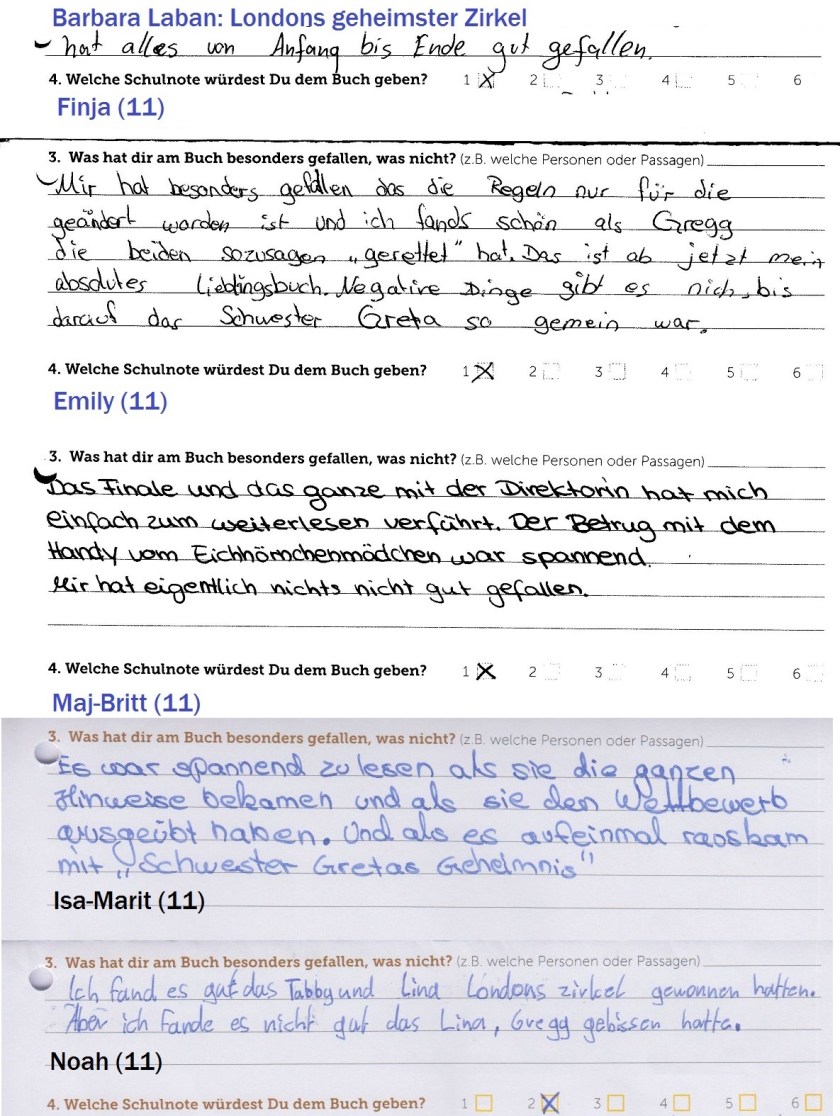 Barbara Laban: Londons geheimster Zirkel
hat alles von Anfang bis Ende gut gefallen.
4. Welche Schulnote würdest Du dem Buch geben? 1 2 3 4 5 6
Finja (11)
3. Was hat dir am Buch besonders gefallen, was nicht? (z.B. welche Personen oder Passagen)
Mir hat besonders gefallen das die Regeln nur für die
geändert worden ist und ich fands schön als Gregg
die beiden sozusagen „gerettet“ hat. Das ist ab jetzt mein
absolutes Lieblingsbuch. Negative Dinge gibt es nich, bis
darauf das Schwester Greta so gemein war.
4. Welche Schulnote würdest Du dem Buch geben? 1 2 3 4 5 6
Emily (11)
3. Was hat dir am Buch besonders gefallen, was nicht? (z.B. welche Personen oder Passagen)
Das Finale und das ganze mit der Direktorin hat mich
einfach zum weiterlesen verführt. Der Betrug mit dem
Handy vom Eichhörnchenmädchen war spannend.
Mir hat eigentlich nichts nicht gut gefallen.
4. Welche Schulnote würdest Du dem Buch geben? 1 2 3 4 5 6
Maj-Britt (11)
3. Was hat dir am Buch besonders gefallen, was nicht? (z.B. welche Personen oder Passagen)
Es war spannend zu lesen als sie die ganzen
Hinweise bekamen und als sie den Wettbewerb
ausgeübt haben. Und als es aufeinmal rauskam
mit „Schwester Gretas Geheimnis“
Isa-Marit (11)
3. Was hat dir am Buch besonders gefallen, was nicht? (z.B. welche Personen oder Passagen)
Ich fand es gut das Tabby und Lina Londons zirkel gewonnen hatten.
Aber ich fande es nicht gut das Lina, Gregg gebissen hatte.
Noah (11)
4. Welche Schulnote würdest Du dem Buch geben? 1 2 3 4 5 6